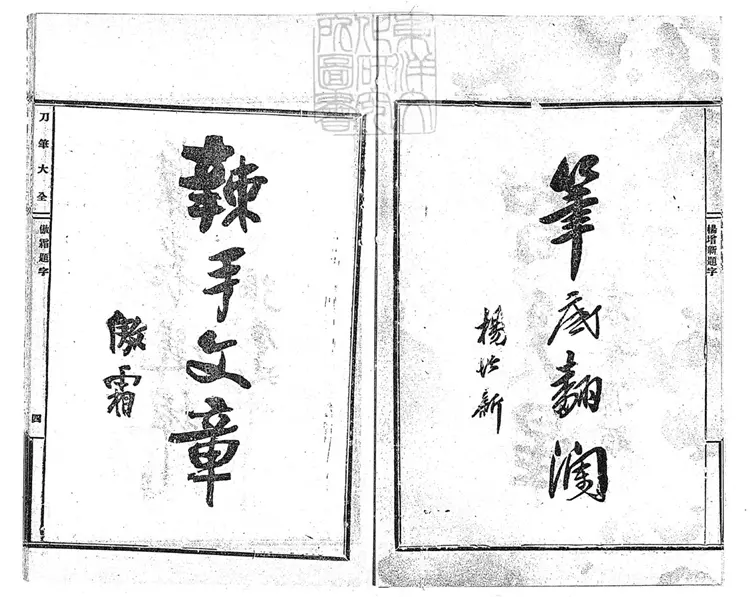 東洋文
化研究
所圖書
楊增新題字
筆底翻瀾
楊增新
辣手文章
傲霜
刀筆大全
傲霜題字
四